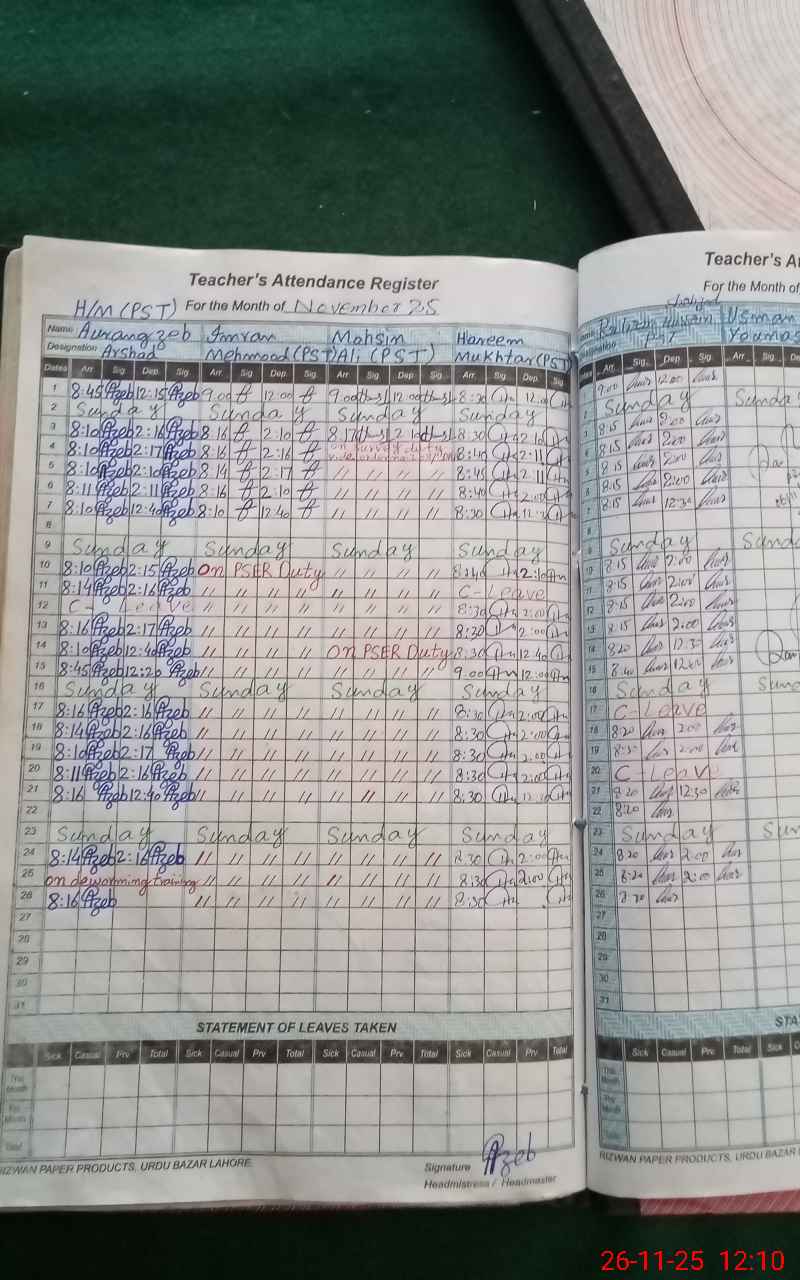 Teacher's Attendance Register
H/M (PST) For the Month of November 25
Name Aurangzeb Imran Mohsin Hareem
Designation Arshad Mehmood (PST) Ali (PST) Mukhtar (PST)
Dates Arr. Sig. Dep. Sig. Arr. Sig. Dep. Sig. Arr. Sig. Dep. Sig. Arr. Sig. Dep. Sig.
1 8:45 Azeb 12:15 Azeb 9.00 12:00 9.00 12.00 8:30 12.00
2 Sunday Sunday Sunday Sunday
3 8:10 Azeb 2:16 Azeb 8:16 2:10 8.17 2:10 8:30 2:10
4 8:10 Azeb 2:17 Azeb 8:16 2:16 on survey duty 8:40 2:11
5 8:10 Azeb 2:10 Azeb 8:14 2:17 // // // // 8:45 2:11
6 8:11 Azeb 2:11 Azeb 8:16 2:10 // // // // 8:40 2:00
7 8:10 Azeb 12:40 Azeb 8:10 12:40 // // // // 8:30
8
9 Sunday Sunday Sunday Sunday
10 8:10 Azeb 2:15 Azeb On PSER Duty // // // // 8:40 2:10
11 8:14 Azeb 2:16 Azeb // // // // // // // // C-Leave
12 C- Leave // // // // // // // // 8:30 2:00
13 8:16 Azeb 2:17 Azeb // // // // // // // // 8:30 2:00
14 8:10 Azeb 12:40 Azeb // // // // On PSER Duty 8:30 12:40
15 8:45 Azeb 12:20 Azeb // // // // // // // // 9.00 12:00
16 Sunday Sunday Sunday Sunday
17 8:16 Azeb 2:16 Azeb // // // // // // // // 8:30 2:00
18 8:14 Azeb 2:16 Azeb // // // // // // // // 8:30 2:00
19 8:10 Azeb 2:17 Azeb // // // // // // // // 8:30 2:00
20 8:11 Azeb 2:16 Azeb // // // // // // // // 8:30 2:00
21 8:16 Azeb 12:40 Azeb // // // // // // // // 8:30
22
23 Sunday Sunday Sunday Sunday
24 8:14 Azeb 2:16 Azeb // // // // // // // // 8:30 2:00
25 on deworming training // // // // // // // // 8:30 2:00
26 8:16 Azeb // // // // // // // // 8:30
27
28
29
30
31
STATEMENT OF LEAVES TAKEN
Sick Casual Prv. Total Sick Casual Prv Total Sick Casual Prv. Total Sick Casual Prv. Total
This Month
Prv. Month
Total
RIZWAN PAPER PRODUCTS, URDU BAZAR LAHORE.
Signature Azeb
Headmistress / Headmaster
Teacher's At
For the Month of
Usman
Hussain Younas
Arr. Sig. Dep. Sig. Arr. Sig.
9:00 12:00
Sunday Sunday
8:15 2:00
8:15 2:00
8:15 2:00
8:15 2:00
8:15 12:30
Sunday Sunda
10 8:15 2:00
11 8:15 2:00
12 8:15 2:00
13 8:15 2.00
14 8:20 12:30
15 8:40 12:00
16 Sunday Sun
17 C-Leave
18 8:20 2:00
19 8:30 2:00
20 C-Leave
21 8:20 12:30
22 8:20
23 Sunday Sun
24 8:20 2:00
25 8:20 2:00
26 8:20
27
28
29
30
31
STA
Sick Casual Prv. Total Sick
This Month
Prv. Month
RIZWAN PAPER PRODUCTS, URDU BAZAR
26-11-25 12:10